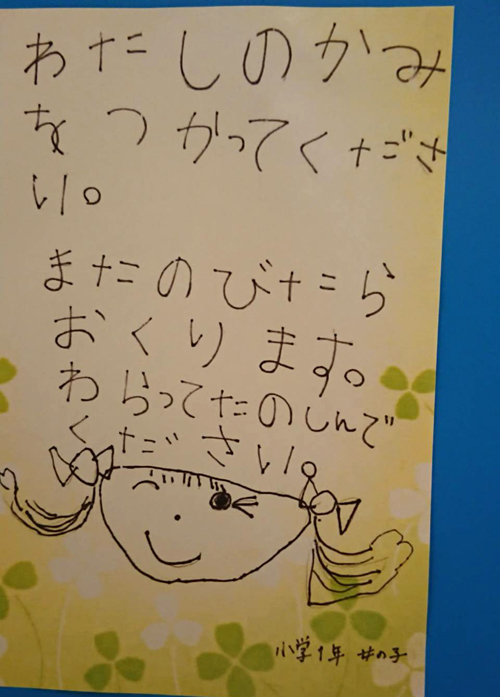 わたしのかみ
をつかってくださ
い。
またのびたら
おくります。
わらってたのしんで
ください。
小学1年 女の子